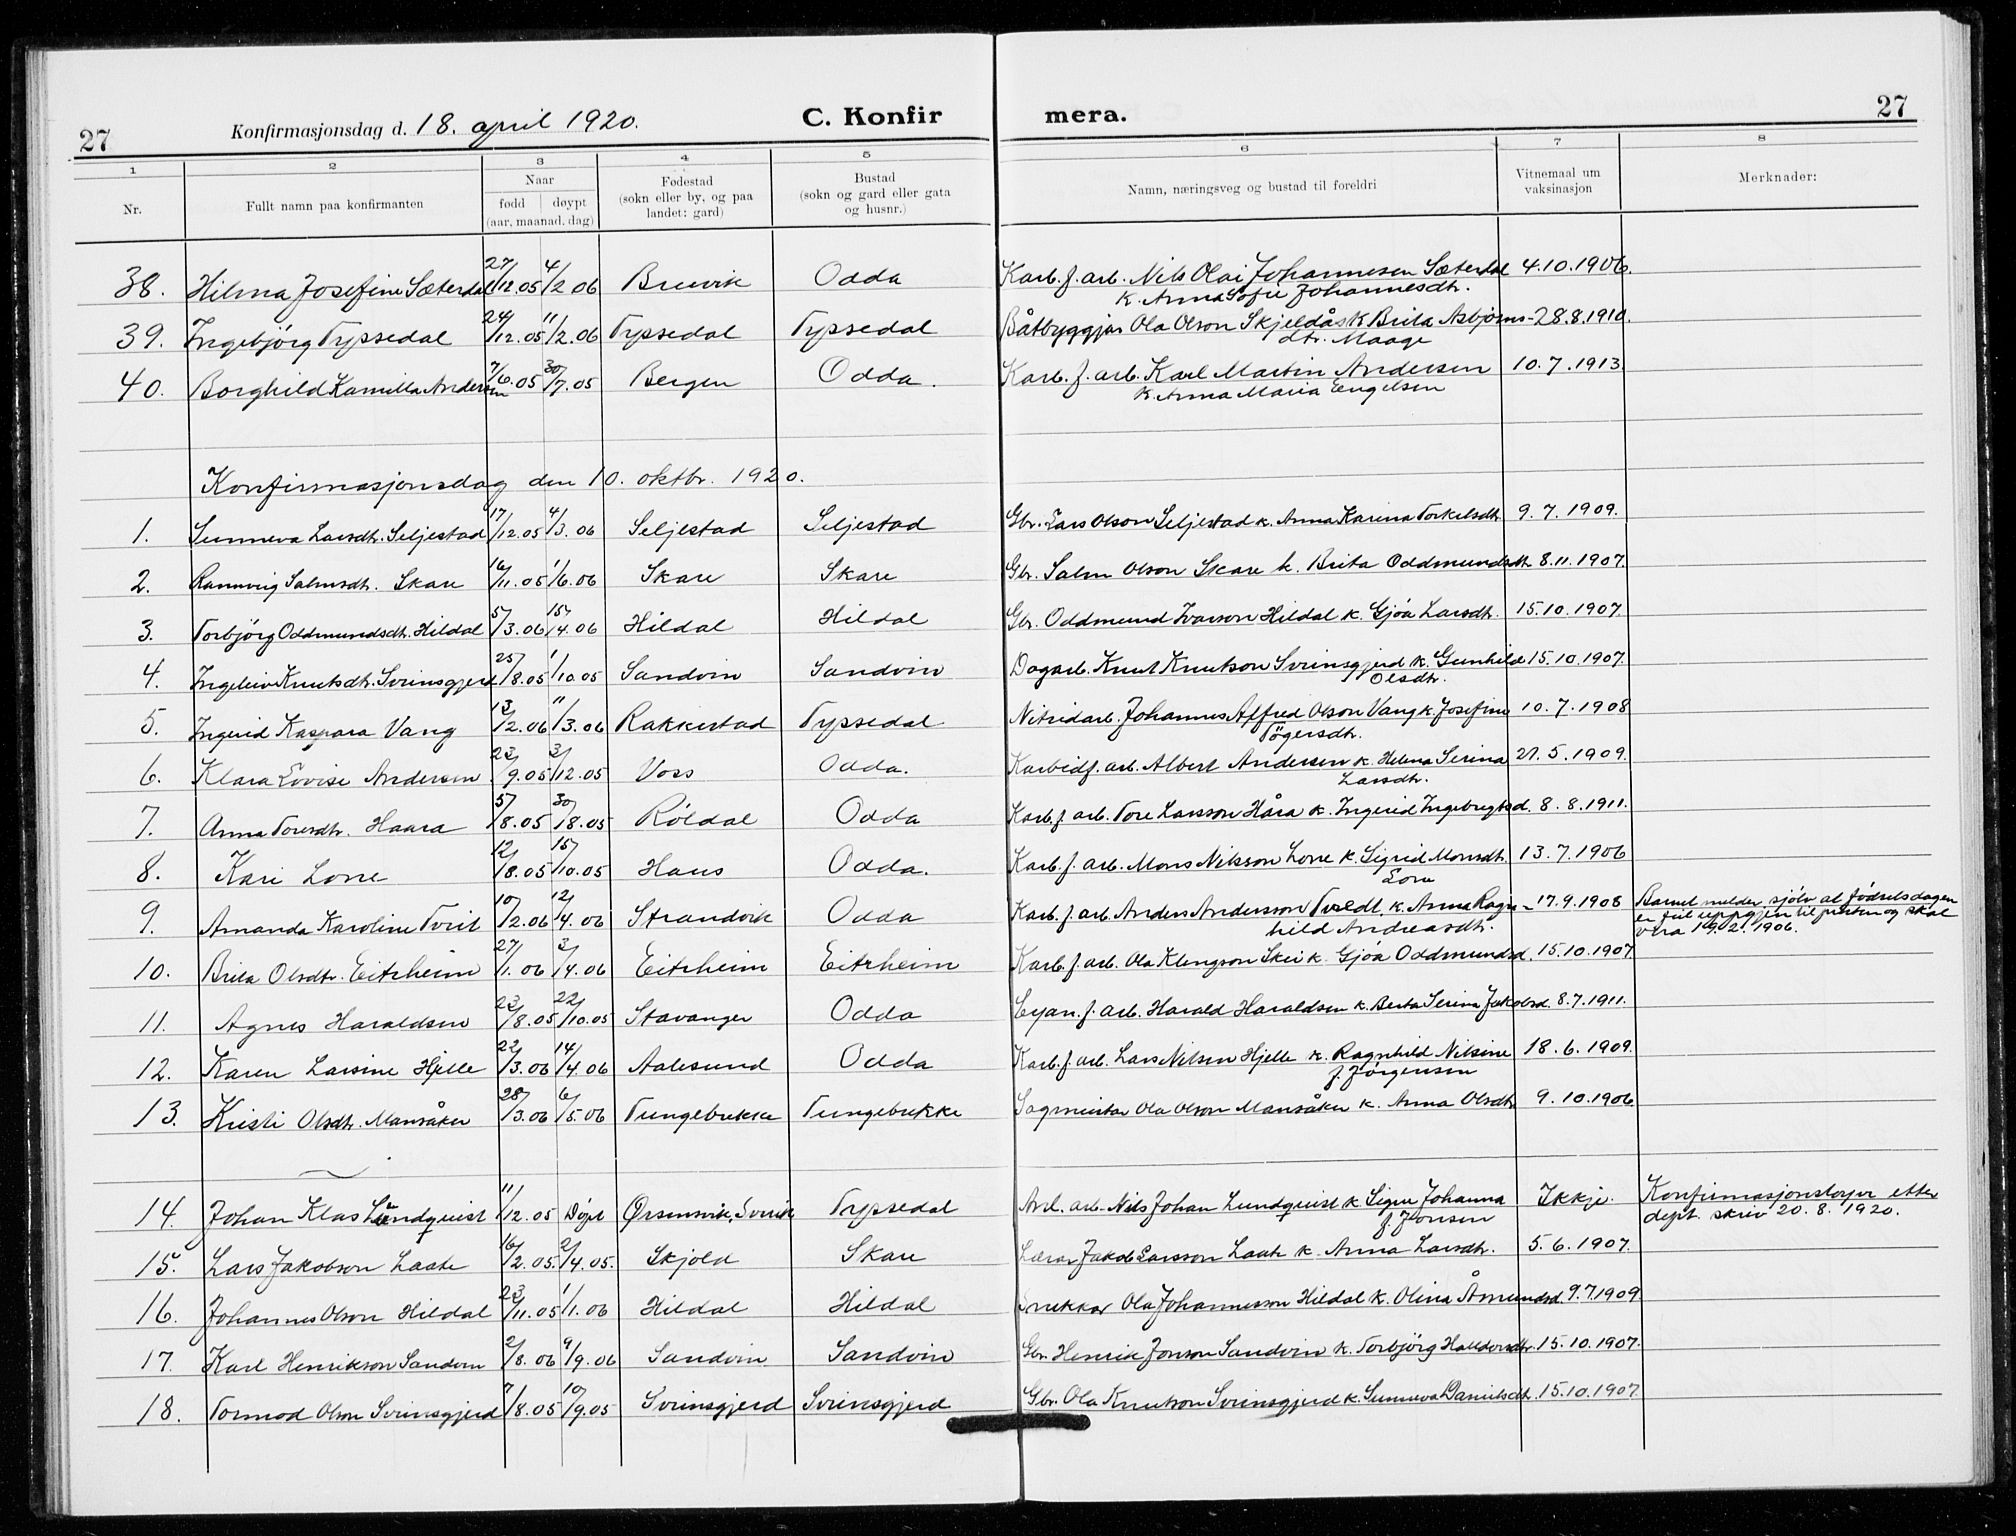 27 Konfirmasjonsdag d. 18. april 1920. C. Konfir mera. 27
1 2 3 4 5 6 7 8
Nr. Fullt namn paa konfirmanten Naar fødd døypt (aar, maanad. dag) Fødestad (sokn eller by, og paa landet: gard) Bustad (sokn og gard eller gata og husnr.) Namn, næringsveg og bustad til foreldri Vitnemaal um vaksinasjon Merknader:
38. Hilma Josefine Sæterdal 27/12.05 4/2 06 Brevik Odda Karb.f. arb. Nils Olai Johannesen Sæterdal 4.10.1906.
k. Anna Sofie Johannesdtr.
39. Ingebjørg Tyssedal 24/12.05 11/2.06 Tyssedal Tyssedal Båtbyggjar Ola Olson Skjeldås k Brita Asbjørns- 28.8.1910.
dtr. Maage
40. Borghild Kamilla Andersen 7/6.05 30/7.05 Bergen Odda. Karb. f. arb. Karl Martin Andersen 10.7.1913.
k. Anna Maria Engelsen
Konfirmasjonsdag den 10. oktbr. 1920.
1. Sunneva Larsdtr. Seljestad 17/12.05 4/3.06 Seljestad Seljestad Gbr. Lars Olson Seljestad k. Anna Karina Torkelsdtr 9.7.1909.
2. Rannveig Salmsdtr. Skare 16/11.05 1/6.06 Skare Skare Gbr. Salm Olson Skare k. Brita Oddmundsdtr 8.11.1907.
3. Torbjörg Oddmundsdtr. Hildal 5/3.06 15/4.06 Hildal Hildal Gbr. Oddmund Ivarson Hildal k. Gjøa Larsdtr. 15.10.1907.
4. Ingeleiv Knutsdtr. Sveinsgjerd 25/8.05 1/10.05 Sandvin Sandvin Dagarb. Knut Knutson Sveinsgjerd k. Gunhild 15.10.1907.
Olsdtr.
5. Ingerid Kaspara Vang 13/2.06 11/3.06 Rakkestad Tyssedal Nitridarb. Johannes Alfred Olson Vang k Josefine 10.7.1908
Tögersdtr.
6. Klara Lovise Andersen 23/9.05 3/12.05 Voss Odda. Karbidf. arb. Albert Andersen k. Helena Serina 21.5.1909.
Larsdtr.
7. Anna Toresdtr. Haara 5/8.05 30/8.05 Röldal Odda Karb.f arb. Tore Larsson Håra k. Ingerid Ingebrigtsd. 8.8.1911.
8. Kari Lone 12/8.05 15/10.05 Haus Odda. Karb. f. arb. Mons Nilsson Lone k. Sigrid Monsdtr. 13.7.1906
Lone
9. Amanda Karoline Tveit 10/2.06 12/4.06 Strandvik Odda Karb. f. arb. Anders Andersson Tvedt. k. Anna Ragn- 17.9.1908 Barnet melder sjölv at födselsdagen
hild Andreasdtr. er feil uppgjeven til presten og skal
vera 19.2.1906.
10. Brita Olsdtr. Eitrheim 27/1.06 3/4.06 Eitrheim Eitrheim Karb. f. arb. Ola Klengson Skei k. Gjøa Oddmundsd. 15.10.1907.
11. Agnes Haraldsen 23/8.05 22/10.05 Stavanger Odda Cyan.f. arb. Harald Haraldsen k. Berta Serina Jakobsd. 8.7.1911.
12. Karen Larsine Hjelle 22/3.06 14/4.06 Aalesund Odda Karb.f. arb. Lars Nilsen Hjelle k. Ragnhild Nilsine 18.6.1909.
f. Jørgensen
13. Kristi Olsdtr. Mansåker 28/3.06 6/5.06 Tungebrekke Tungebrekke Sagmeister Ola Olson Mansåker k. Anna Olsdtr 9.10.1906
14. Johan Klas Lundquist 11/12.05 Döpt Ørsensvik, Sverik Tyssedal Anl. arb. Nils Johan Lundquist k Signe Johanna Ikkje. Konfirmasjonsloyve etter
f. Jonsen dept. skriv 20.8.1920.
15. Lars Jakobson Laate 16/2.05. 2/4.05. Skjold Skare Lærar Jakob Larsson Laate k. Anna Larsdtr. 5.6.1907.
16. Johannes Olson Hildal 23/11.05 1/1.06 Hildal Hildal Snekkar Ola Johannesson Hildal k. Olina Åmundsd. 9.7.1909
17. Karl Henrikson Sandvin 2/8.06 9/9.06 Sandvin Sandvin Gbr. Henrik Jonson Sandvin k. Torbjörg Halldorsdtr. 15.10.1907.
18. Tormod Olson Sveinsgjerd 7/8.05 10/9.05 Sveinsgjerd Sveinsgjerd Gbr. Ola Knutson Sveinsgjerd k. Sunneva Danielsdtr. 15.10.1907.